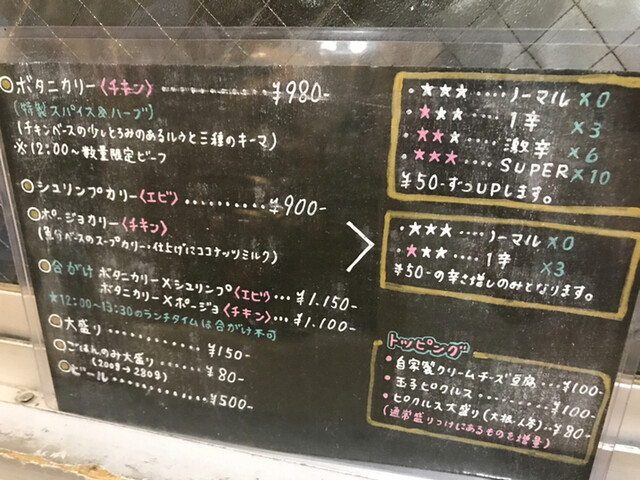 ボタニカリー〈チキン〉 ............ ¥980-
(特製スパイス&ハーブ)
(チキンベースの少しとろみのあるルゥと三種のキーマ)
※12:00~数量限定ビーフ
シュリンプカリー〈エビ〉.......... ¥900-
ポージョカリー〈チキン〉
(魚介ベースのスープカリー・仕上げにココナッツミルク)
合がけ ボタニカリー×シュリンプ〈エビ〉... ¥1.150-
ボタニカリー×ポージョ〈チキン〉... ¥1.100-
★12:00~13:30のランチタイムは合がけ不可
大盛り .......... ¥150-
ごはんのみ大盛り ...... ¥80-
(200g→280g)
ビール .......... ¥500-
・★★★ ....ノーマル ×0
・★★★ .... 1辛 ×3
・★★★ .... 激辛 ×6
・★★★ .... SUPER ×10
¥50-ずつUPします。
・★★★ ....ノーマル ×0
・★★★ .... 1辛 ×3
¥50-の辛さ増しのみとなります。
トッピング
・自家製クリームチーズ豆腐 ....¥100-
・玉子ピクルス .......... ¥100-
・ピクルス大盛り(大根、人参)..¥80-
(通常盛りつけにあるものを増量)